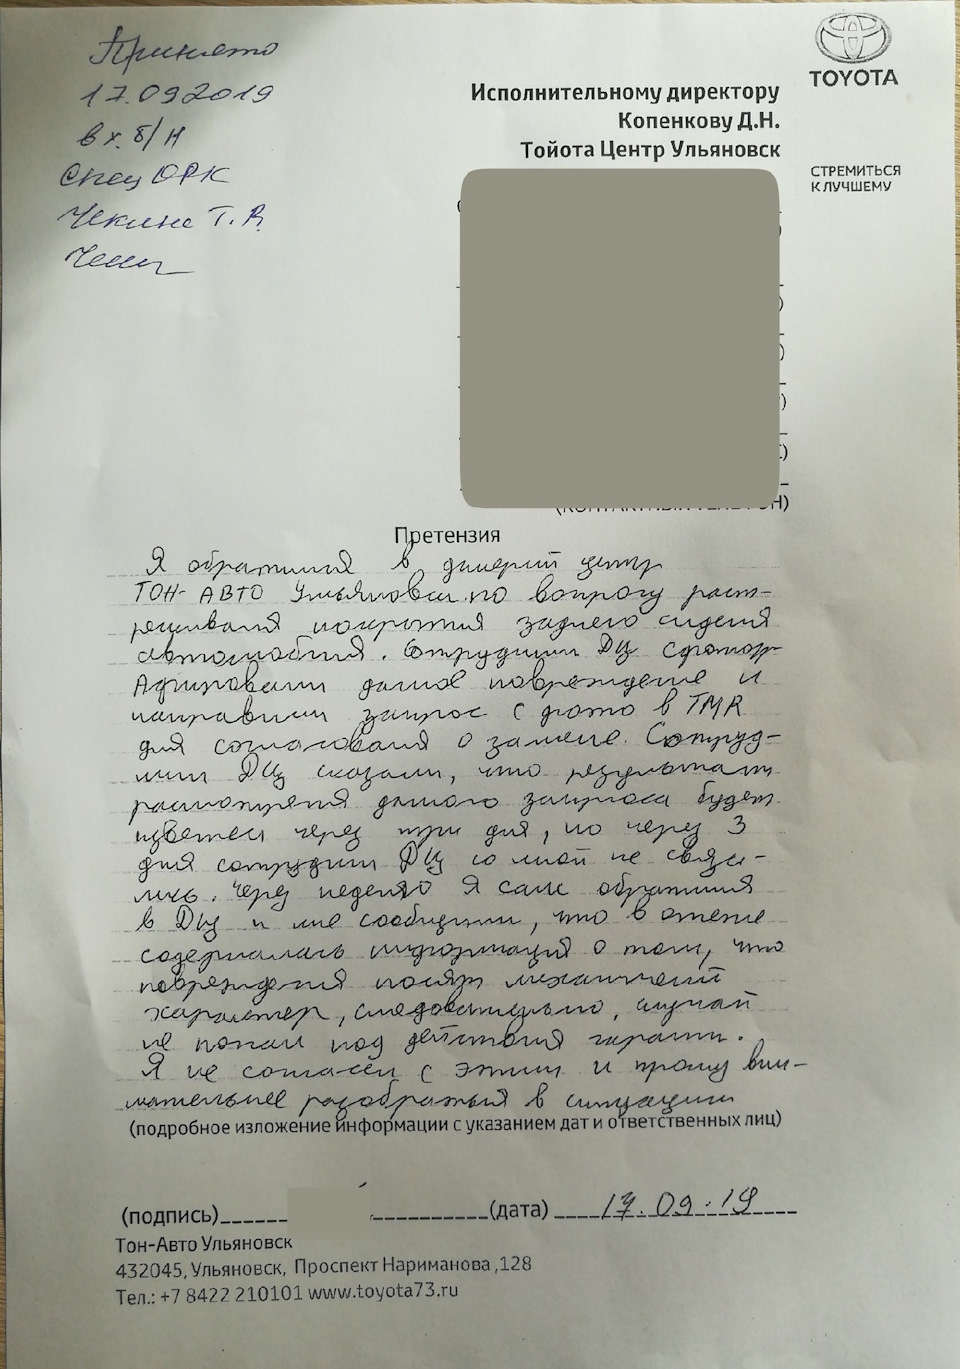 Принято
17.09.2019
вх. б/н
Спец ОРК
Чекина Т.В.
TOYOTA
Исполнительному директору
Копенкову Д.Н.
Тойота Центр Ульяновск
СТРЕМИТЬСЯ
К ЛУЧШЕМУ
Претензия
Я обратился в дилерий центр
ТОН-АВТО Ульяновск по вопросу раст-
рескиваня покрытия заднего сиденя
автомобиля. Сотрудники ДЦ сфотогр-
Афировали даное повреждение и
направили запрос с фото в TMR
для согласованя о замене. Сотруд-
ники ДЦ сказали, что результат
расмотреня данного запроса будет
известен через три дня, но через 3
дня сотрудники ДЦ со мной не связа-
лись. Через неделю Я сам обратился
в ДЦ и мне сообщили, что в ответе
содержалась информация о том, что
повреждения носят механический
характер, следовательно, случай
не попал под действия гаранти.
Я не согласен с этим и прошу вни-
мательнее разобраться в ситуации
(подробное изложение информации с указанием дат и ответственных лиц)
(подпись) (дата) 17.09.19
Тон-Авто Ульяновск
432045, Ульяновск, Проспект Нариманова ,128
Тел.: +7 8422 210101 www.toyota73.ru